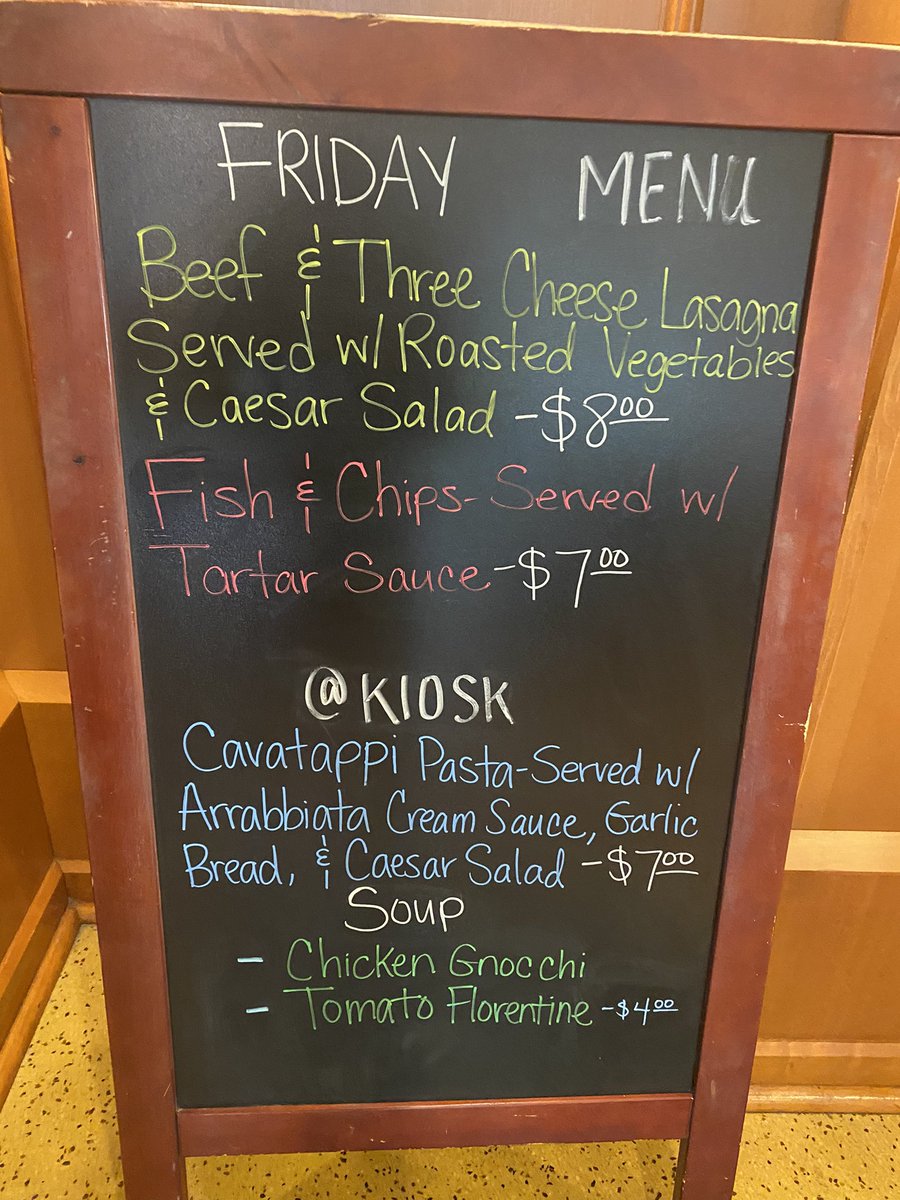 FRIDAY MENU
Beef & Three Cheese Lasagna
Served w/ Roasted Vegetables
& Caesar Salad - $8.00
Fish & Chips - Served w/
Tartar Sauce - $7.00
@KIOSK
Cavatappi Pasta - Served w/
Arrabbiata Cream Sauce, Garlic
Bread, & Caesar Salad - $7.00
Soup
- Chicken Gnocchi
- Tomato Florentine - $4.00